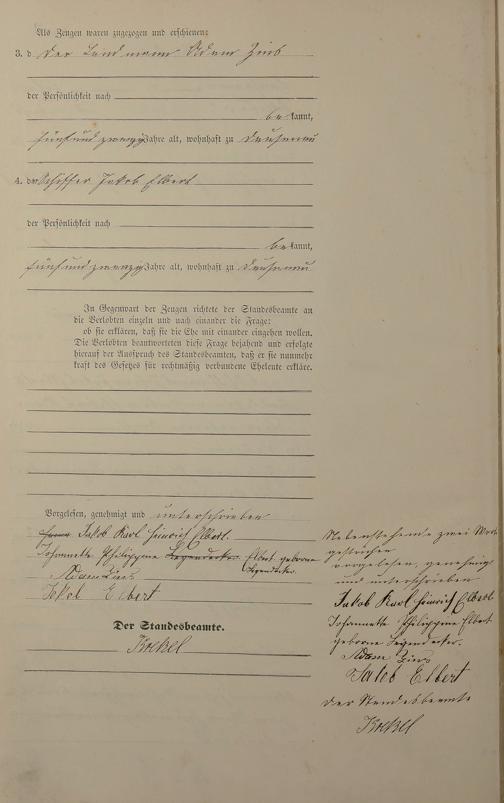 Als Zeugen waren zugezogen und erschienen:
3. der Landmann Adam Zins
der Persönlichkeit nach
be kannt,
fünfundzwanzig Jahre alt, wohnhaft zu Dausenau
4. der Schiffer Jakob Elbert
der Persönlichkeit nach
be kannt,
fünfundzwanzig Jahre alt, wohnhaft zu Dausenau
In Gegenwart der Zeugen richtete der Standesbeamte an
die Verlobten einzeln und nach einander die Frage:
ob sie erklären, daß sie die Ehe mit einander eingehen wollen.
Die Verlobten beantworteten diese Frage bejahend und erfolgte
hierauf der Ausspruch des Standesbeamten, daß er sie nunmehr
kraft des Gesetzes für rechtmäßig verbundene Eheleute erkläre.
Vorgelesen, genehmigt und unterschrieben
Jakob Karl Heinrich Elbert.
Johannette Philippine Elbert geborne
Adam Zins
Jakob Elbert
Der Standesbeamte.
Nebenstehende zwei Worte
gestrichen
vorgelesen, genehmigt
und unterschrieben
Jakob Karl Heinrich Elbert
Johannette Philippine Elbert
geborne
Adam Zins
Jakob Elbert
Der Standesbeamte